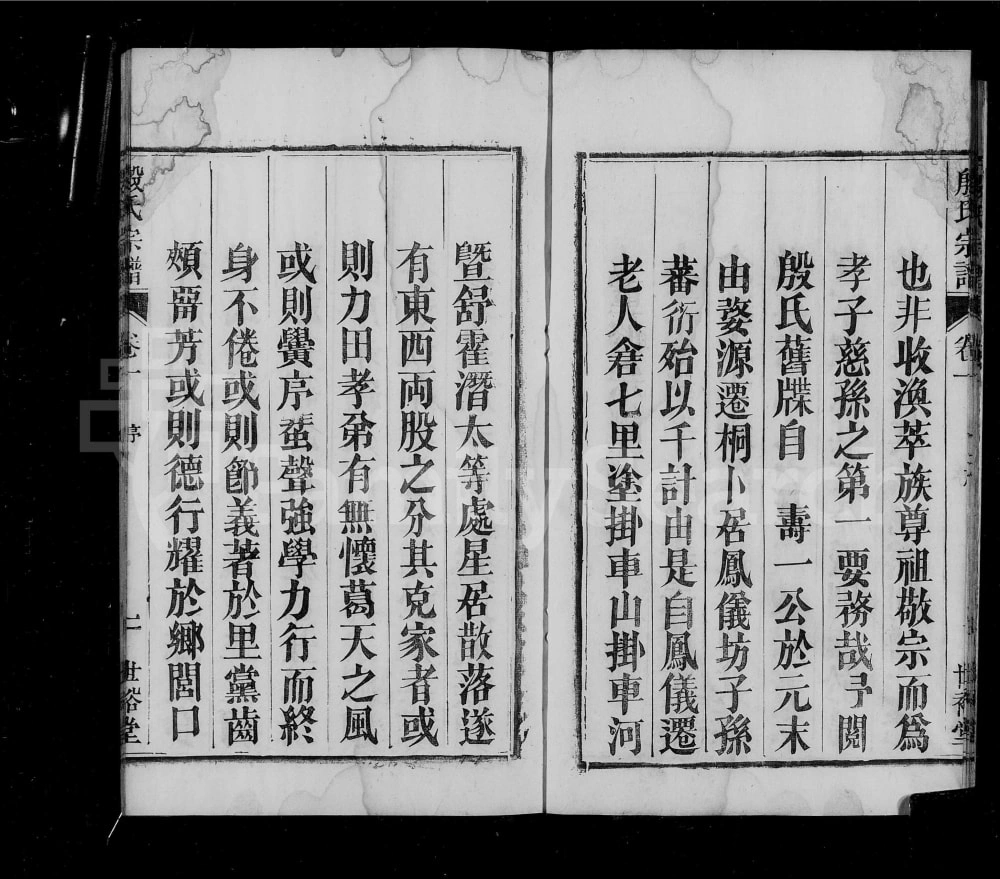 殷氏宗譜 卷一
也非收渙萃族尊祖敬宗而爲
孝子慈孫之第一要務哉予閱
殷氏舊牒自 壽一公於元末
由婺源遷桐卜居鳳儀坊子孫
蕃衍殆以千計由是自鳳儀遷
老人倉七里塗掛車山掛車河
暨舒霍潛太等處星居散落遂
有東西両股之分其克家者或
則力田孝弟有無懷葛天之風
或則黌序蜚聲強學力行而終
身不倦或則節義著於里黨齒
頰畱芳或則德行耀於鄉閭口
殷氏宗譜 卷一 序 二 世裕堂